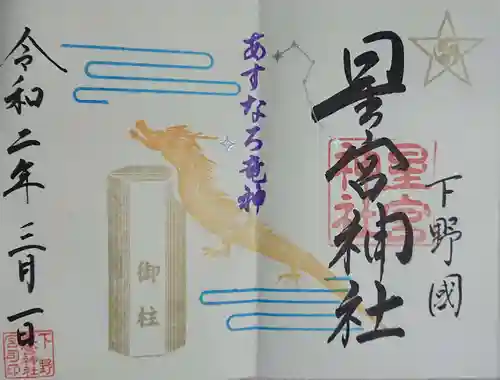 下野國
星宮神社
星宮
神社
あすなろ竜神
御柱
令和二年三月一日